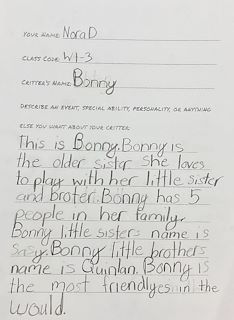 YOUR NAME: Nora D
CLASS CODE: W1-3
CRITTER'S NAME: Bonny
DESCRIBE AN EVENT, SPECIAL ABILITY, PERSONALITY, OR ANYTHING
ELSE YOU WANT ABOUT YOUR CRITTER:
This is Bonny. Bonny is
the older sister she loves
to play with her little sister
and broter. Bonny has 5
people in her family.
Bonny little sisters name is
Sasy. Bonny little brothers
name is Quinlan. Bonny is
the most friendlyes in the
would.